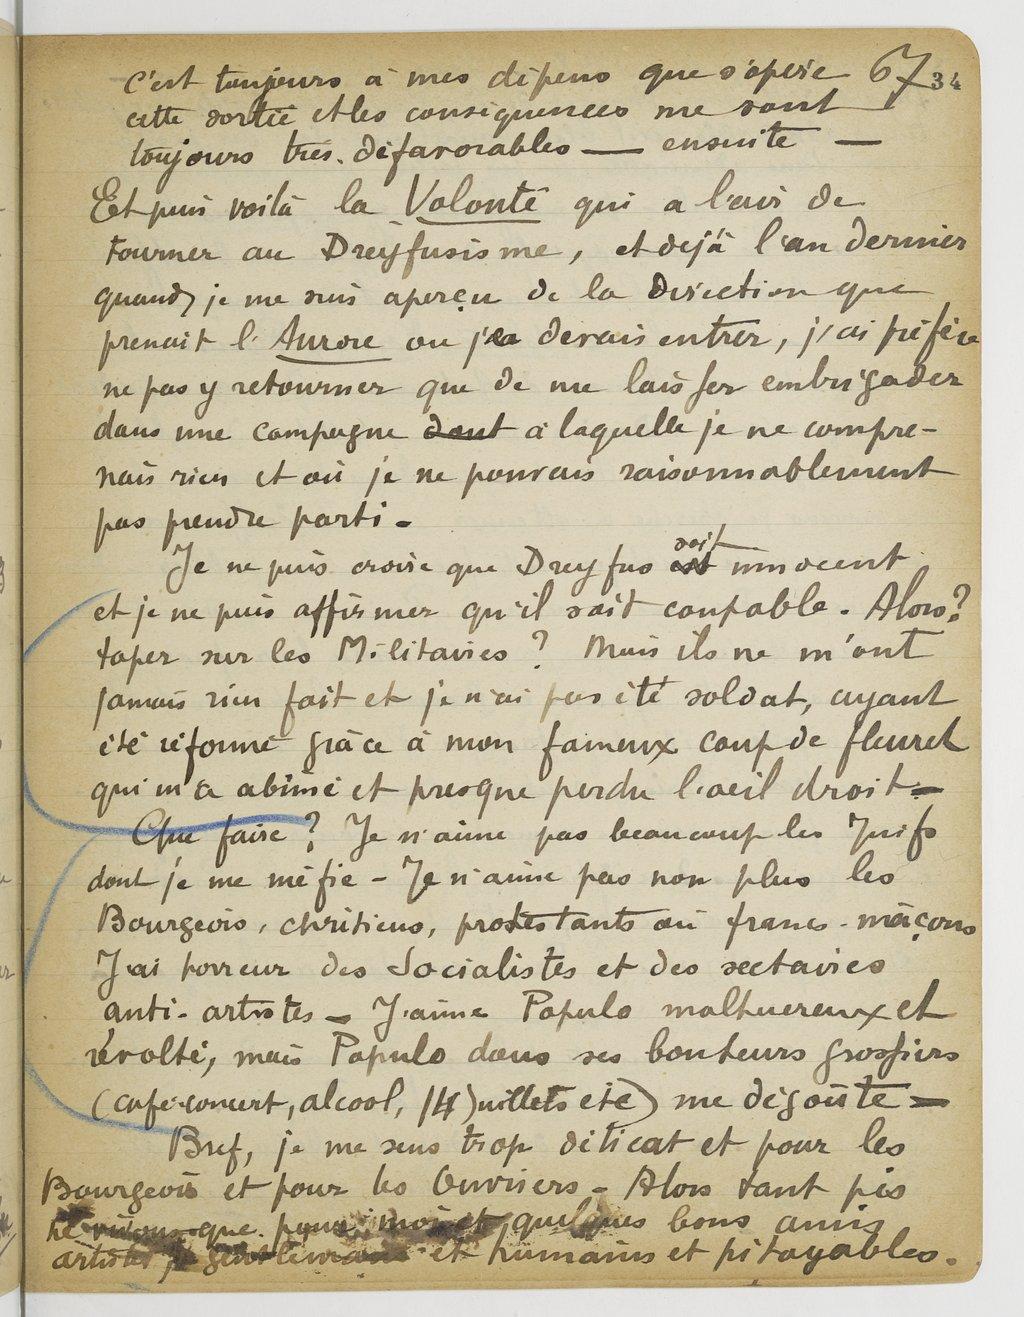 c'est toujours à mes dépens que s'opère 67 34
cette sortie et les conséquences me sont
toujours très. défavorables — ensuite —
Et puis voilà la Volonté qui a l'air de
tourner au Dreyfusisme, et déjà l'an dernier
quand je me suis aperçu de la direction que
prenait l'Aurore ou je devais entrer, j'ai préféré
ne pas y retourner que de me laisser embrigader
dans une campagne dont à laquelle je ne compre-
nais rien et où je ne pouvais raisonnablement
pas prendre parti.
Je ne puis croire que Dreyfus est soit innocent
et je ne puis affirmer qu'il soit coupable. Alors?
taper sur les Militaires? Mais ils ne m'ont
jamais rien fait et je n'ai pas été soldat, ayant
été réformé grâce à mon fameux coup de fleuret
qui m'a abîmé et presque perdu l'oeil droit —
Que faire? Je n'aime pas beaucoup les Juifs
dont je me méfie - Je n'aime pas non plus les
Bourgeois, chrétiens, protestants où francs-maçons
J'ai horreur des Socialistes et des sectaires
anti-artistes - J'aime Populo malhuereux et
révolté, mais Populo dans ses bonheurs grossiers
(café-concert, alcool, 14 juillets etc) me dégoûte —
Bref, je me sens trop délicat et pour les
Bourgeois et pour les Ouvriers - Alors tant pis
ne vivons que pour moi et quelques bons amis
artistes gentlemans et humains et pitoyables.